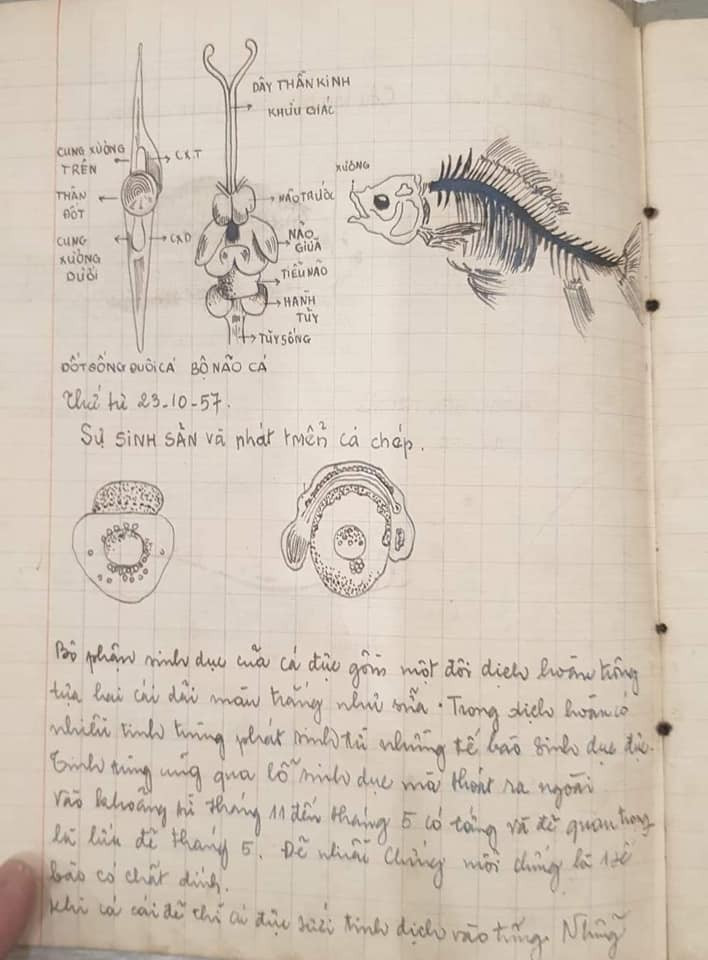 DÂY THẦN KINH
KHỨU GIÁC
CUNG XƯƠNG
TRÊN
CXT
THÂN
ĐỐT
CUNG
XƯƠNG
DƯỚI
CXD
NÃO TRƯỚC
NÃO
GIỮA
TIỂU NÃO
HÀNH
TỦY
TỦY SỐNG
XƯƠNG
ĐỐT SỐNG ĐUÔI CÁ BỘ NÃO CÁ
Thứ tư 23-10-57.
Sự SINH SẢN và phát triển cá chép.
Bộ phận sinh dục của cá đực gồm một đôi dịch hoàn trông
tựa hai cái dải màu trắng như sữa. Trong dịch hoàn có
nhiều tinh trùng phát sinh từ những tế bào sinh dục đực.
Tinh trùng qua lỗ sinh dục mà thoát ra ngoài
vào khoảng từ tháng 11 đến tháng 5 có và đẻ quan trọng
là lứa đẻ tháng 5. Đẻ nhiều mỗi là 1 tế
bào có chất dính.
Khi cá cái đẻ thì cá đực tưới tinh dịch vào trứng. Những